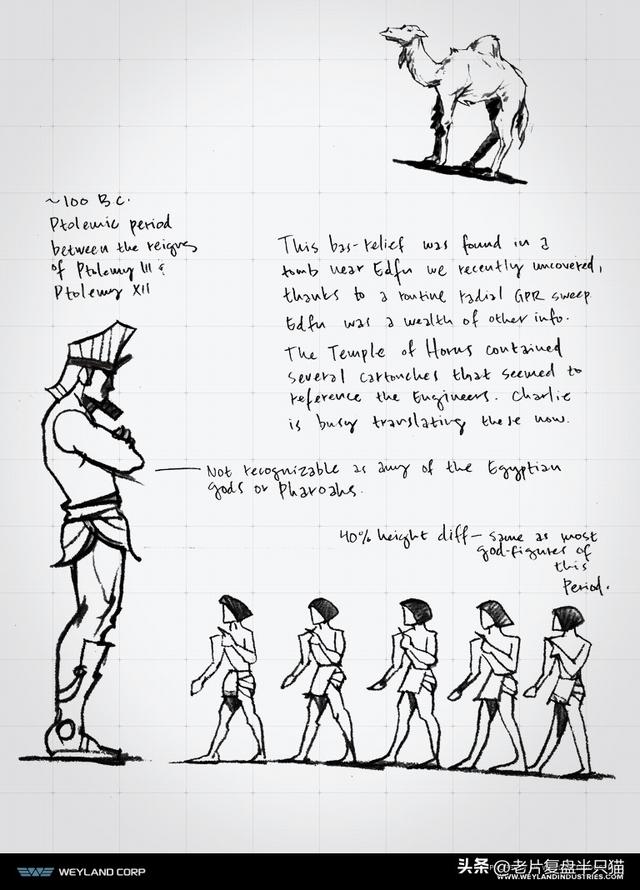 ~100 B.C.
Ptolemic period
between the reigns
of Ptolemy III &
Ptolemy XII
This bas-relief was found in a
tomb near Edfu we recently uncovered,
thanks to a routine radial GPR sweep.
Edfu was a wealth of other info.
The Temple of Horus contained
several cartouches that seemed to
reference the Engineers. Charlie
is busy translating these now.
Not recognizable as any of the Egyptian
gods or Pharoahs.
40% height diff – same as most
god-figures of
this
Period.
WEYLAND CORP
头条 @老片复盘半只猫
WWW.WEYLANDINDUSTRIES.COM